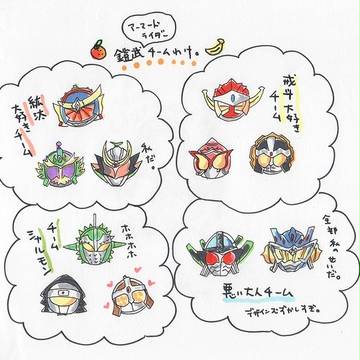 アーマード
ライダー
鎧武チームわけ。
紘汰
大好き
チーム
私だ。
戒斗大好き
チーム
チーム
シャルモン
ホホホホ
全部私のせいだ。
悪い大人チーム
デザインむずかしすぎ。